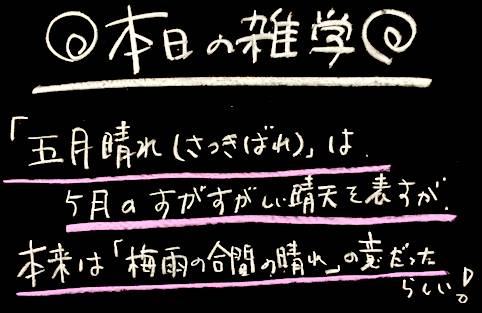 本日の雑学
「五月晴れ(さつきばれ)」は
5月のすがすがしい晴天を表すが、
本来は「梅雨の合間の晴れ」の意だった
らしい!